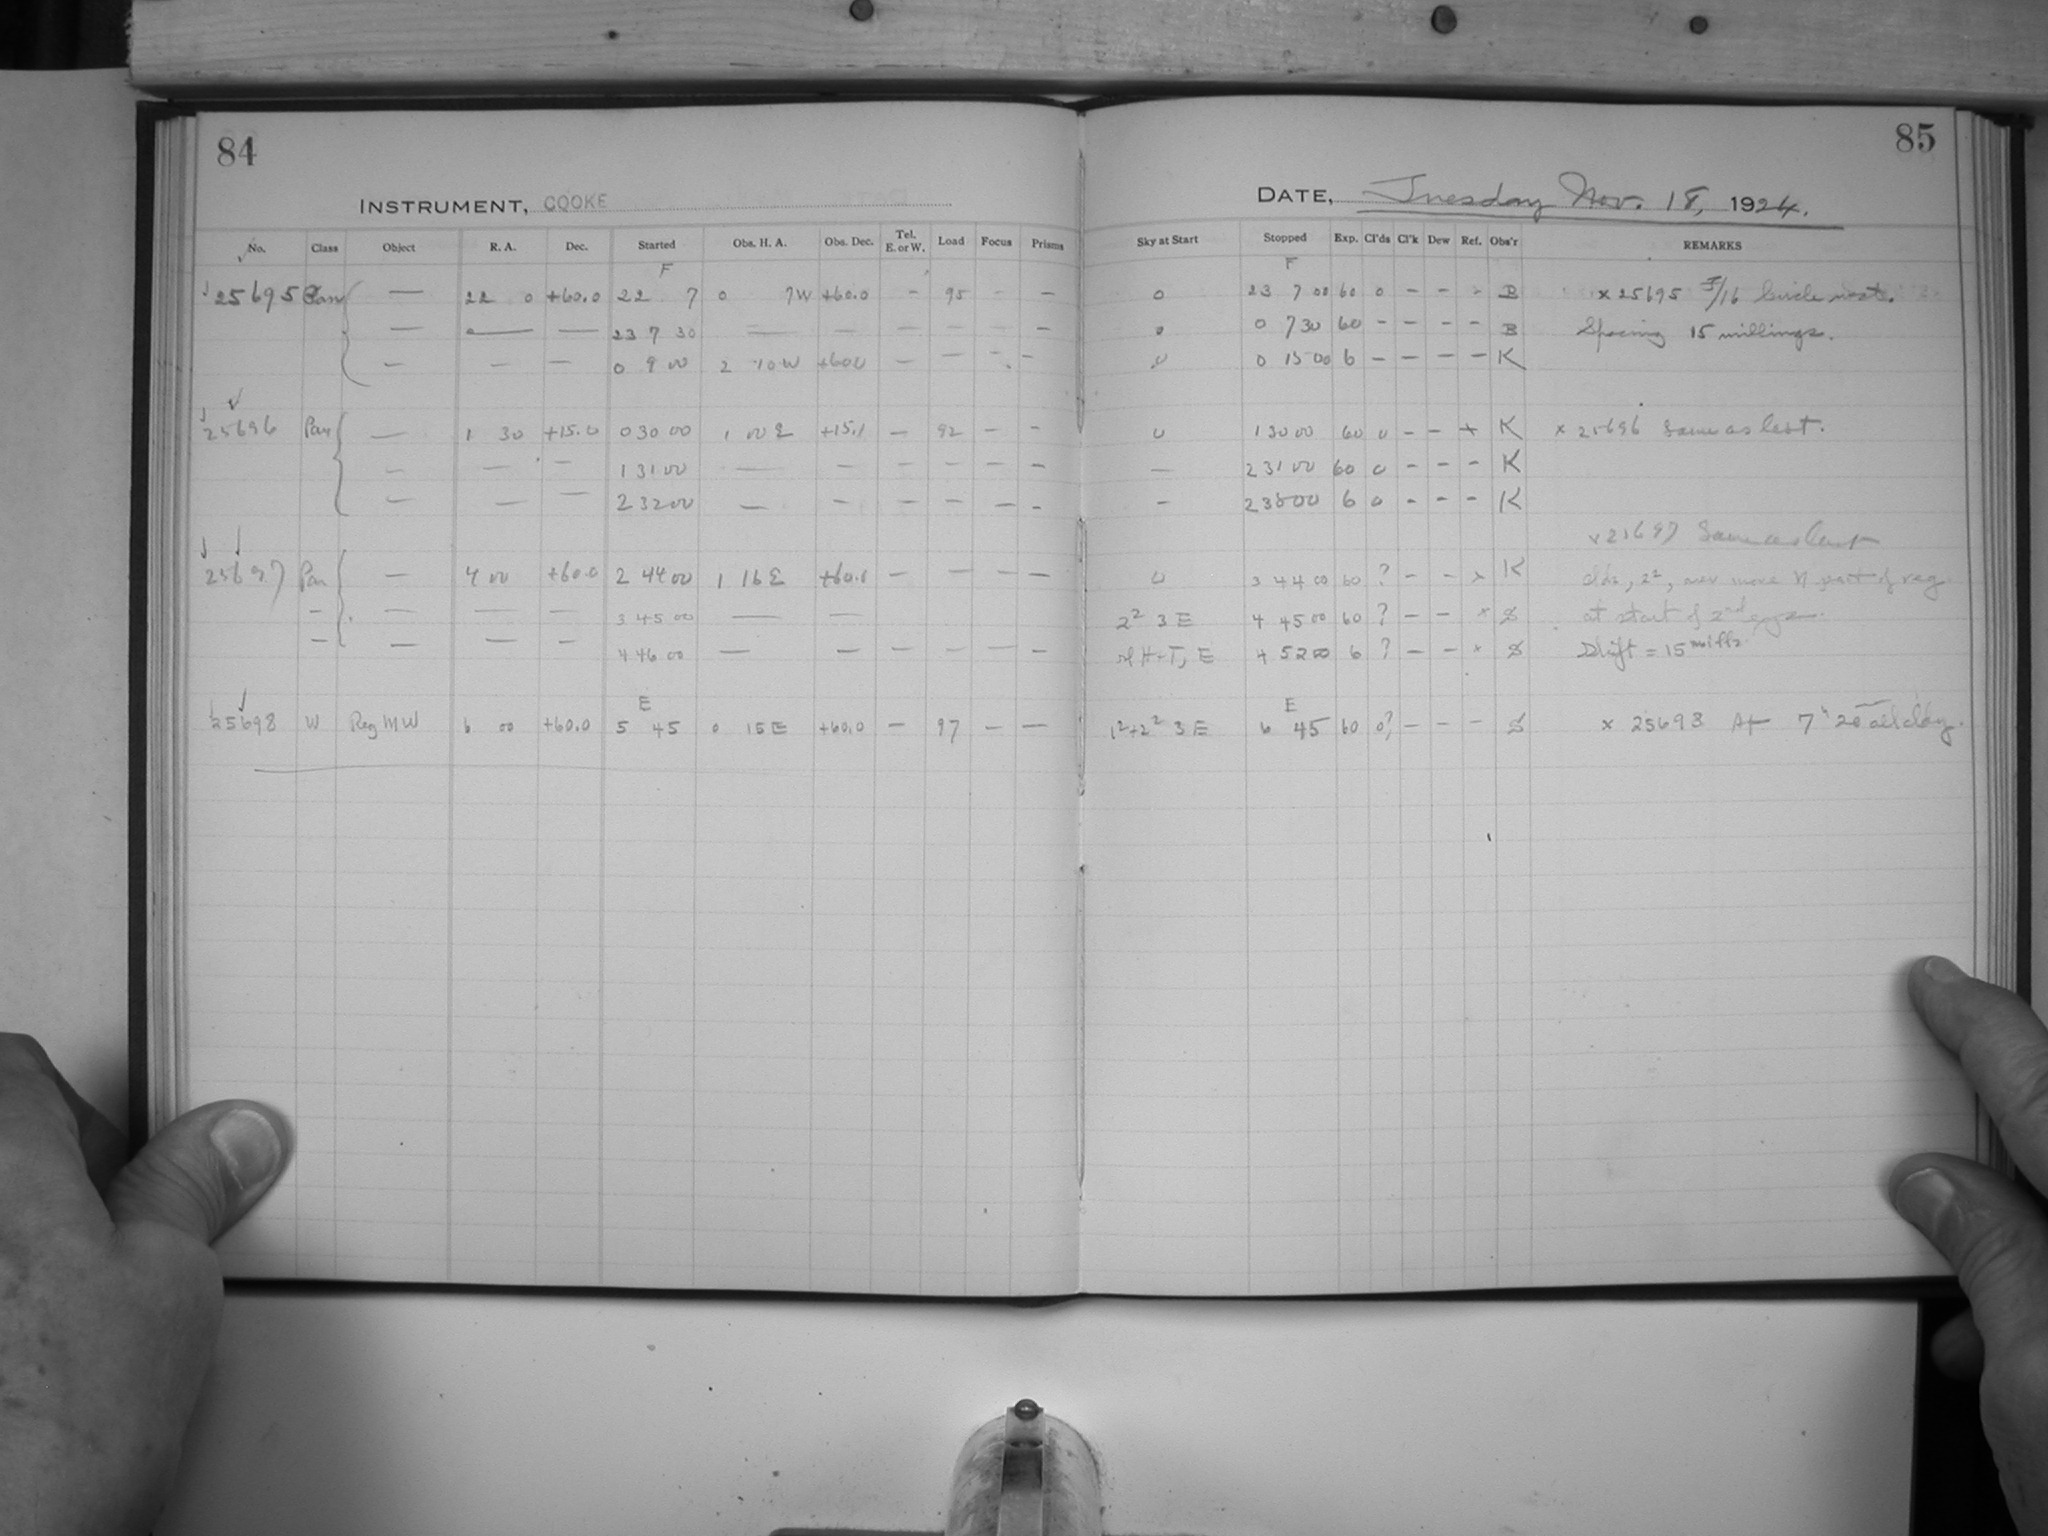 84
INSTRUMENT, COOKE
No. Class Object R. A. Dec. Started Obs. H. A. Obs. Dec. Tel. E. or W. Load Focus Prisms
F
25695 Pan — 22 0 +60.0 22 7 0 7W +60.0 – 95 – –
— — — 23 7 30 — — — – – –
— — — 0 9 00 2 10W +60.0 – – – –
25696 Pan — 1 30 +15.0 0 30 00 1 00 E +15.1 – 92 – –
– — – 1 31 00 — – – – – –
– — – 2 32 00 — – – – – –
25697 Pan — 4 00 +60.0 2 44 00 1 16 E +60.1 – – – –
– — — — 3 45 00 — —
– — — – 4 46 00 — – – – – –
E
25698 W Reg MW 6 00 +60.0 5 45 0 15 E +60.0 – 97 – –
85
DATE, Tuesday Nov. 18, 1924.
Sky at Start Stopped Exp. Cl'ds Cl'k Dew Ref. Obs'r REMARKS
F
0 23 7 00 60 0 – – × B × 25695 3/16 Circle west.
0 0 7 30 60 – – – – B Spacing 15 millings.
0 0 15 00 6 – – – – K
0 1 30 00 60 0 – – × K × 25696 Same as last.
— 2 31 00 60 0 – – – K
– 2 38 00 6 0 – – – K
× 25697 Same as last
0 3 44 00 60 ? – – × K clds, 2², over more N part of reg
2² 3 E 4 45 00 60 ? – – × S at start of 2nd
H-T, E 4 52 00 6 ? – – × S Drift = 15
E
1²+2² 3 E 6 45 60 0? – – – S × 25698 At 7ʰ 20 all cldy.